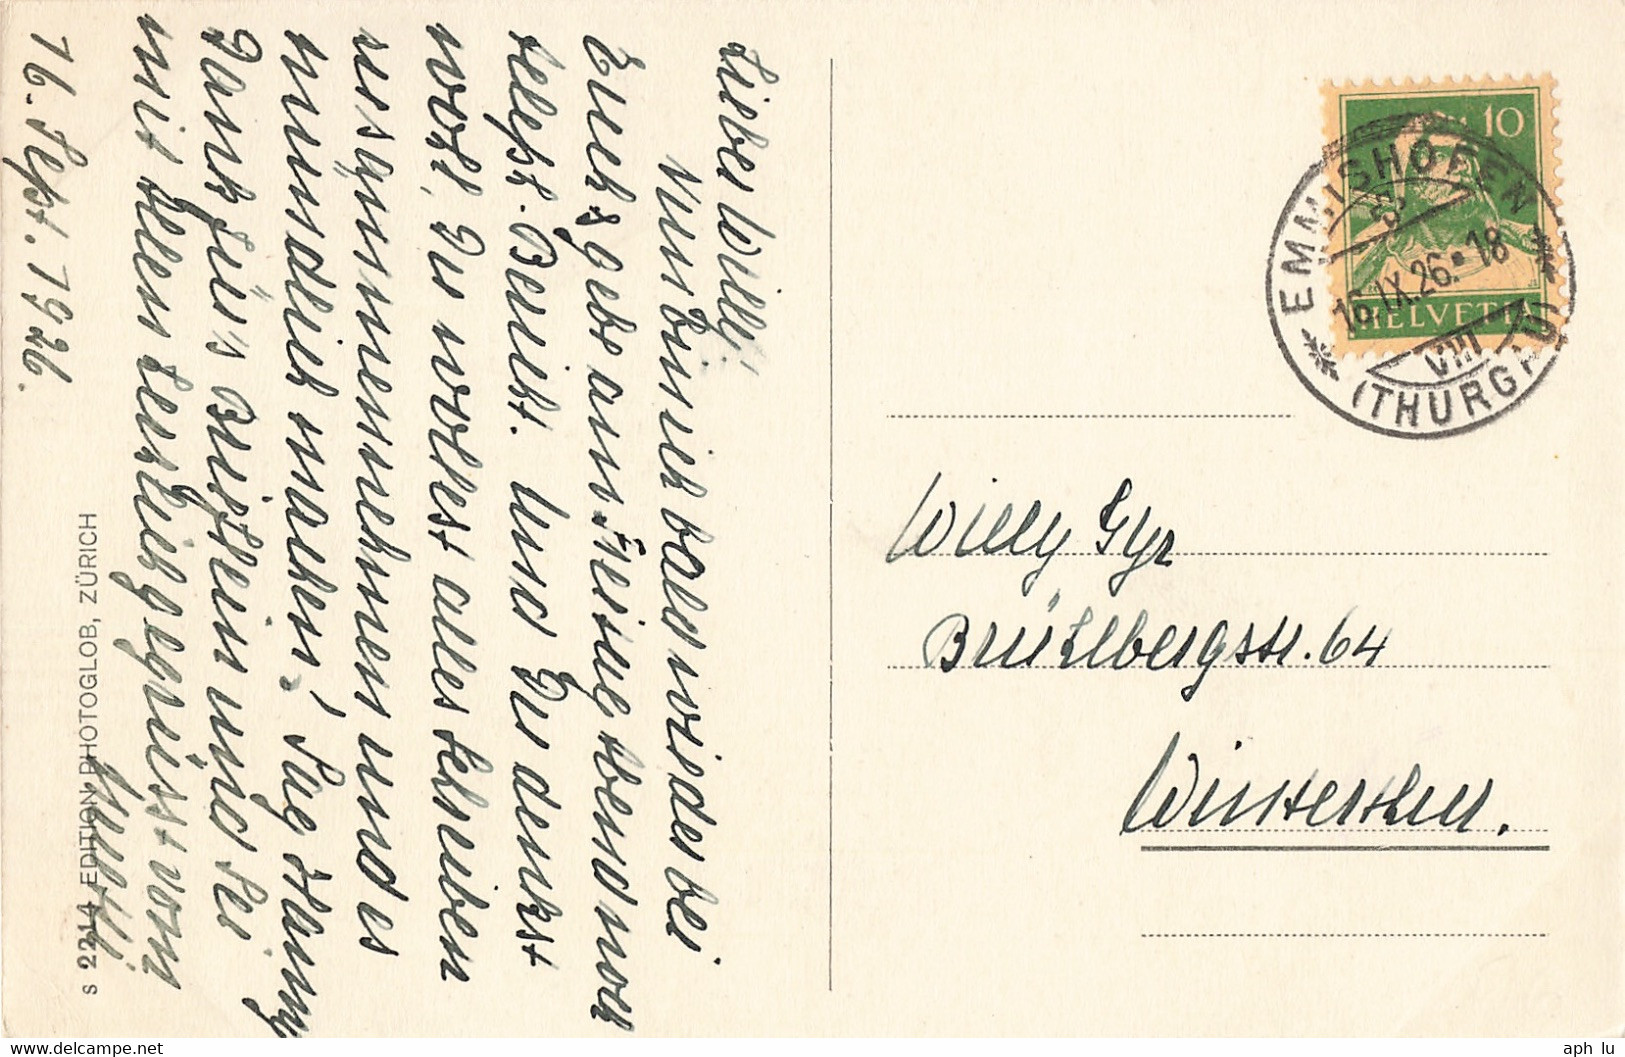 Lieber Willy!
Nun bin ich bald wieder bei
Euch, gebe am Freitag Abend noch
selbst Bericht. Und Du denkst
wohl, Du wollest alles schreiben
zusammennehmen und es
mündlich machen! Sag Hanny
Dank für's Brieflein und sei
mit allen herzlich gegrüsst von
Muetti
16. Sept. 1926.
S 2214 EDITION PHOTOGLOB, ZÜRICH
10
HELVETIA
EMMISHOFEN
16.IX.26.-18
VIII
(THURGAU)
Willy Gyr
Brühlbergstr. 64
Winterthur.
aph_lu